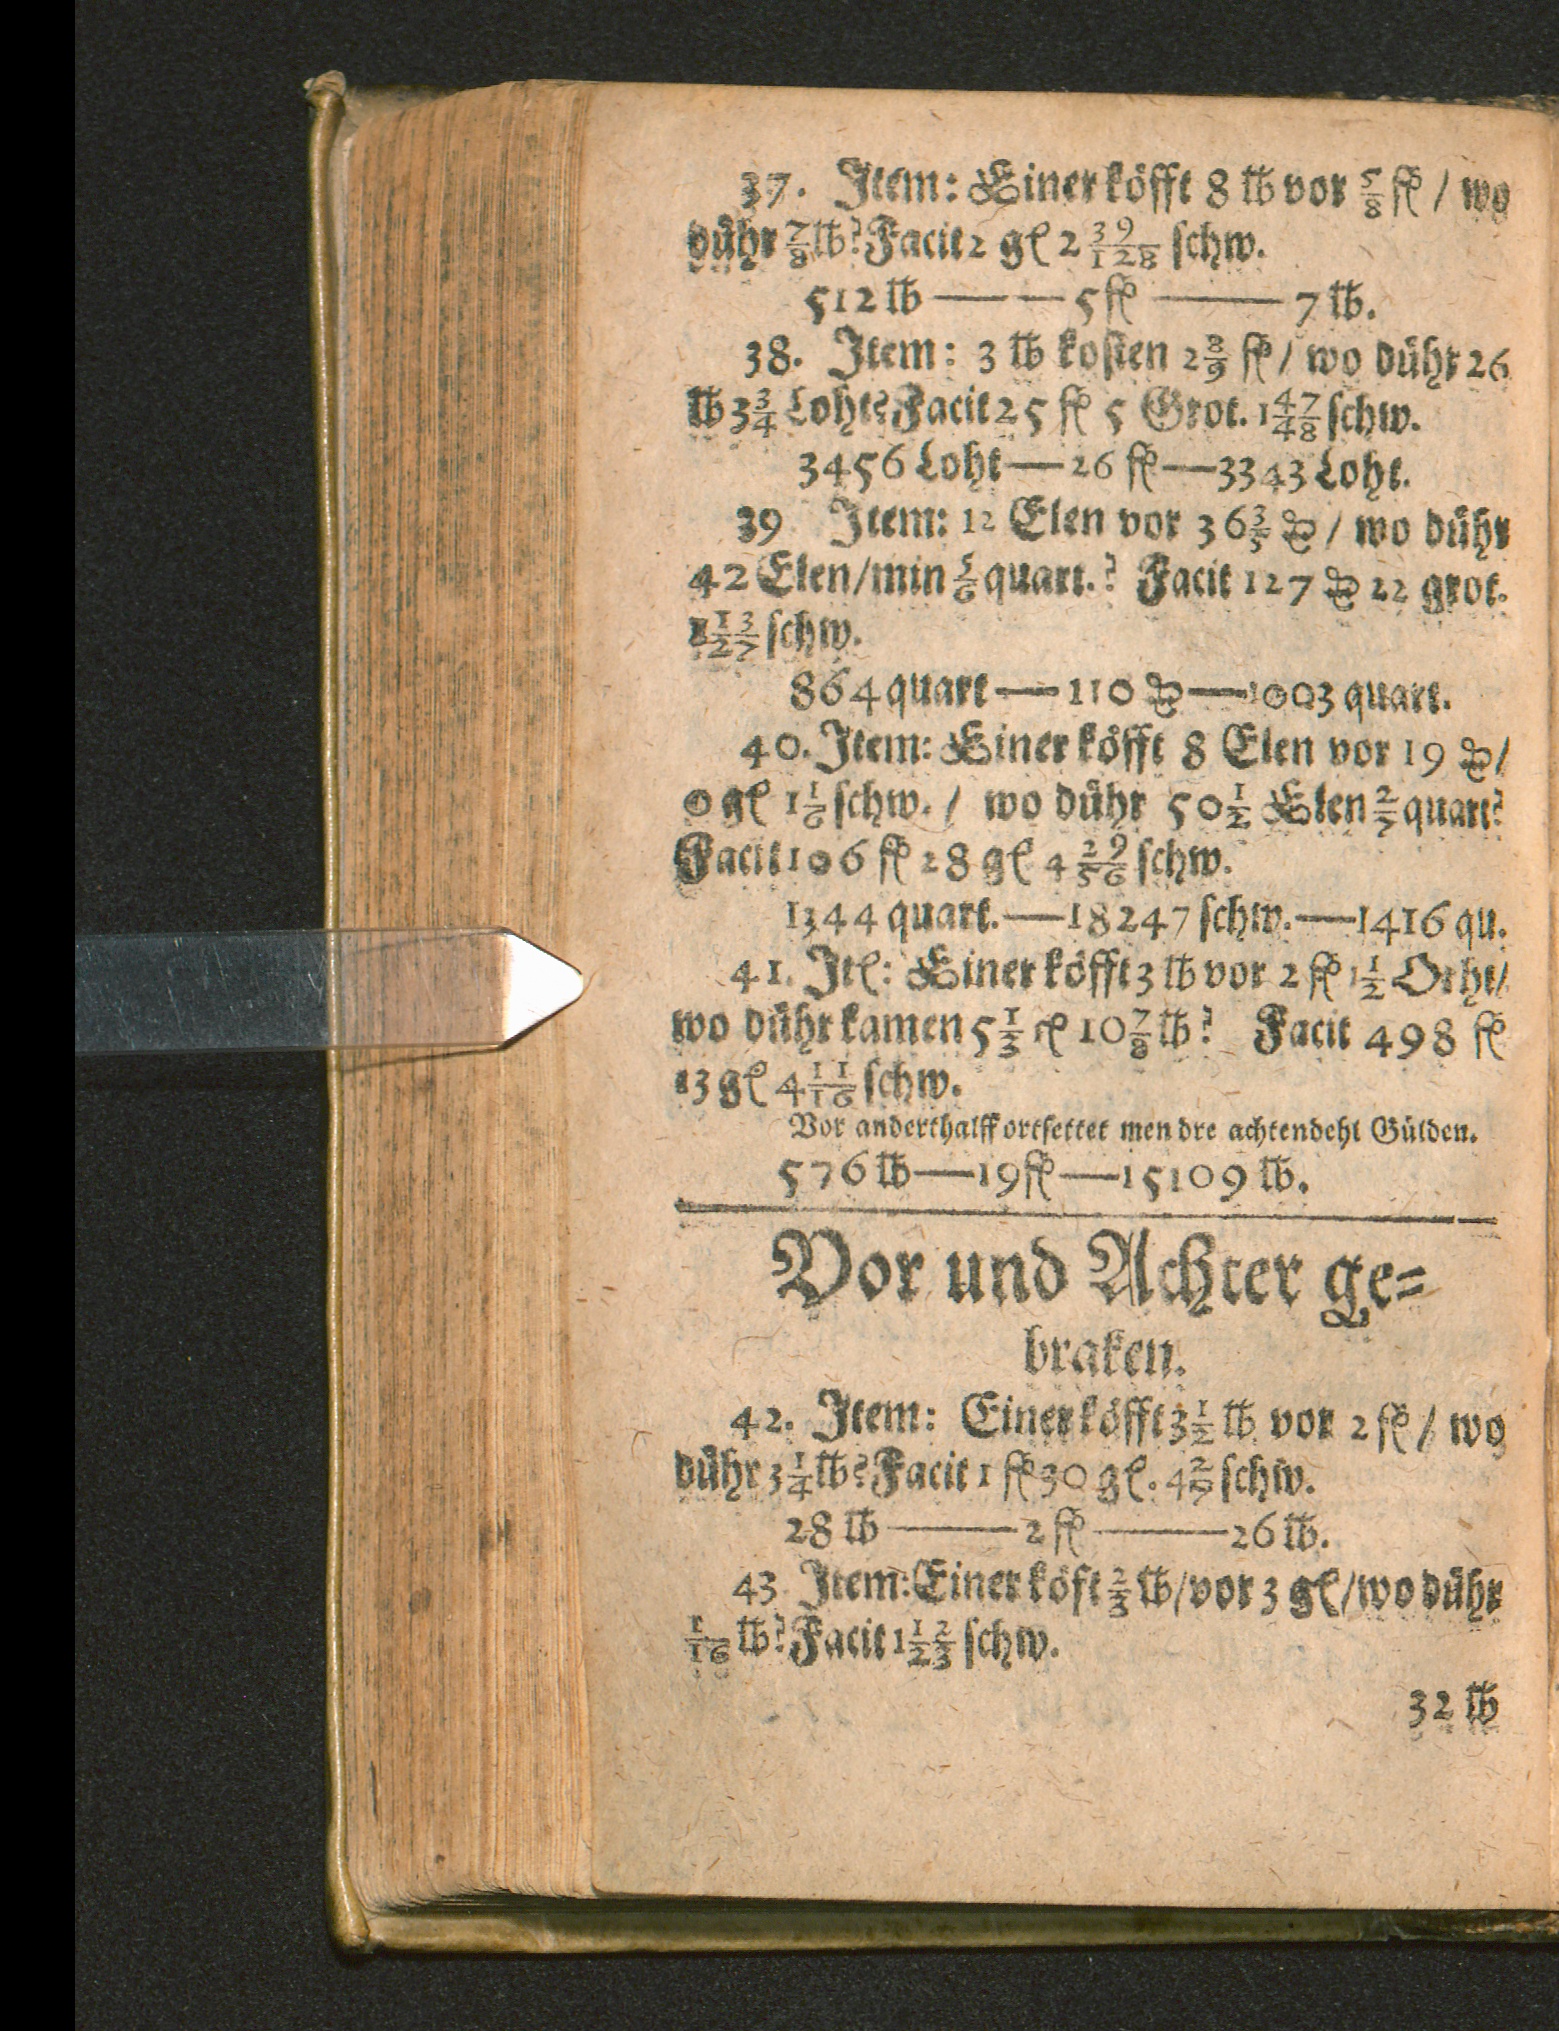 37. Item: Einer köfft 8 ℔ vor 5/8 fl / wo
dühr 7/8 ℔? Facit 2 gl 2 39/128 schw.
512 ℔ — — 5 fl — 7 ℔.
38. Item: 3 ℔ kosten 2 8/9 fl / wo dühr 26
℔ 3 3/4 Loht? Facit 25 fl 5 Grot. 1 47/48 schw.
3456 Loht — 26 fl — 3343 Loht.
39 Item: 12 Elen vor 36 3/5 / wo dühr
42 Elen / min 5/6 quart.? Facit 127 22 grot.
1 3 / 2 7 schw.
864 quart — 110 — 1003 quart.
40. Item: Einer köfft 8 Elen vor 19 /
0 gl 1 1/6 schw. / wo dühr 50 1/2 Elen 2/7 quart?
Facit 106 fl 28 gl 4 29/56 schw.
1344 quart. — 18247 schw. — 1416 qu.
41. Itl: Einer köfft 3 ℔ vor 2 fl 1 1/2 Orht /
wo dühr kamen 5 1/3 10 7/8 ℔? Facit 498 fl
13 gl 4 11/16 schw.
Vor anderthalff ort settet men dre achtendehl Gülden.
576 ℔ — 19 fl — 15109 ℔.
Vor und Achter ge=
braken.
42. Item: Einer köfft 3 1/2 ℔ vor 2 fl / wo
dühr 3 1/4 ℔? Facit 1 fl 30 gl. 4 2/7 schw.
28 ℔ — 2 fl — 26 ℔.
43 Item: Einer köft 2/3 ℔ / vor 3 gl / wo dühr
1/16 ℔? Facit 1 1/2 2/3 schw.
32 ℔